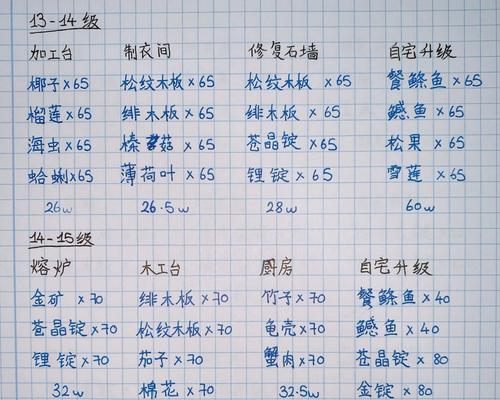 13-14级
加工台 制衣间 修复石墙 自宅升级
椰子×65 松纹木板×65 松纹木板×65 餐鲦鱼×65
榴莲×65 绯木板×65 绯木板×65 鳡鱼×65
海虫×65 榛蘑菇×65 苍晶锭×65 松果×65
蛤蜊×65 薄荷叶×65 锂锭×65 雪莲×65
26w 26.5w 28w 60w
14-15级
熔炉 木工台 厨房 自宅升级
金矿×70 绯木板×70 竹子×70 餐鲦鱼×40
苍晶锭×70 松纹木板×70 龟壳×70 鳡鱼×40
锂锭×70 茄子×70 蟹肉×70 苍晶锭×80
32w 棉花×70 32.5w 金锭×80